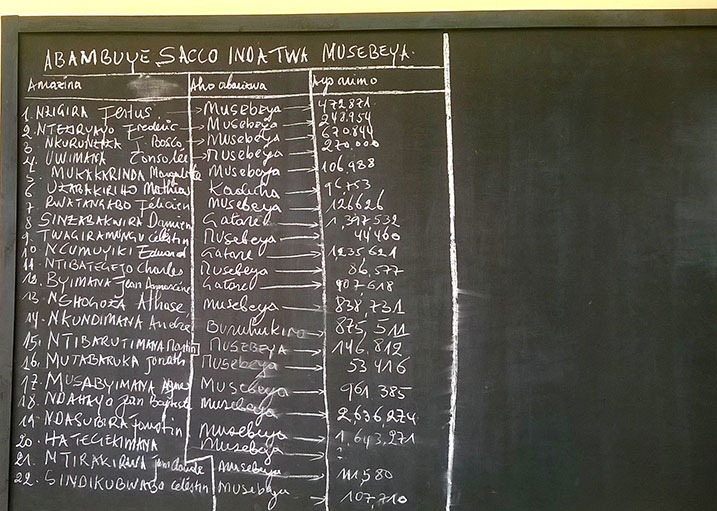 ABAMBUYE SACCO INDATWA MUSEBEYA.
Amazina Aho abarizwa Ayo rimo
1. NZIGIRA Festus Musebeya 472871
2. NTEZIRYAYO Frederic Musebeya 248.954
3 NKURUNZIZA J. Bosco Musebeya 670844
4. UWIMANA Consolée Musebeya 270.000
5. MUKAKARINDA Musebeya 106,988
6 UZABAKIRIHO Mathias Kaduha 96,753
7 RWATANGABO Félicien Musebeya 126626
8 SINZABAKWIRA Damien Gatare 1,397532
9. TWAGIRAMUNGU Célestin Musebeya 44460
10. NCUMUYIKI Eduard Gatare 1235621
11. NTIBATEGEJO Charles Musebeya 86,577
12. BYIMANA Jean Damascène Gatare 907618
13. NSHOGOZA Athase musebeya 838,731
14. NKUNDIMANA André Buruhukiro 875,511
15. NTIBARUTIMANA Martin MUSEBEYA 146,812
16. MUTABARUKA Jonath Musebeya 53416
17. MUSABYIMANA Agnes Musebeya 961385
18. NDAHAYO Jean Baptiste musebeya 2,636,274
19. NDASUBIRA Faustin Musebeya 1,643,271
20. HATEGEKIMANA Musebeya ?
21. MTIRAKIRWA Jean claude Musebeya 111,580
22. SINDIKUBWABO Célestin Musebeya 107,710